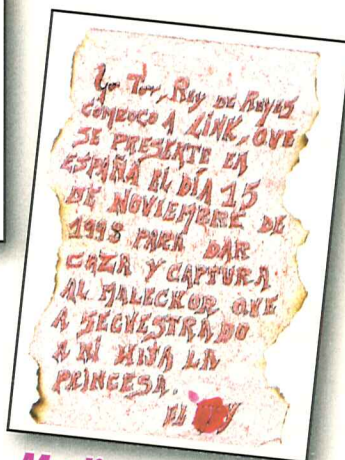 Yo Tor, Rey de Reyes
convoco a LINK, QUE
SE PRESENTE EN
ESPAÑA EL DÍA 15
DE NOVIEMBRE DE
1998 PARA DAR
CAZA Y CAPTURA
AL MALECHOR QUE
A SECUESTRADO
A MI HIJA LA
PRINCESA.
El